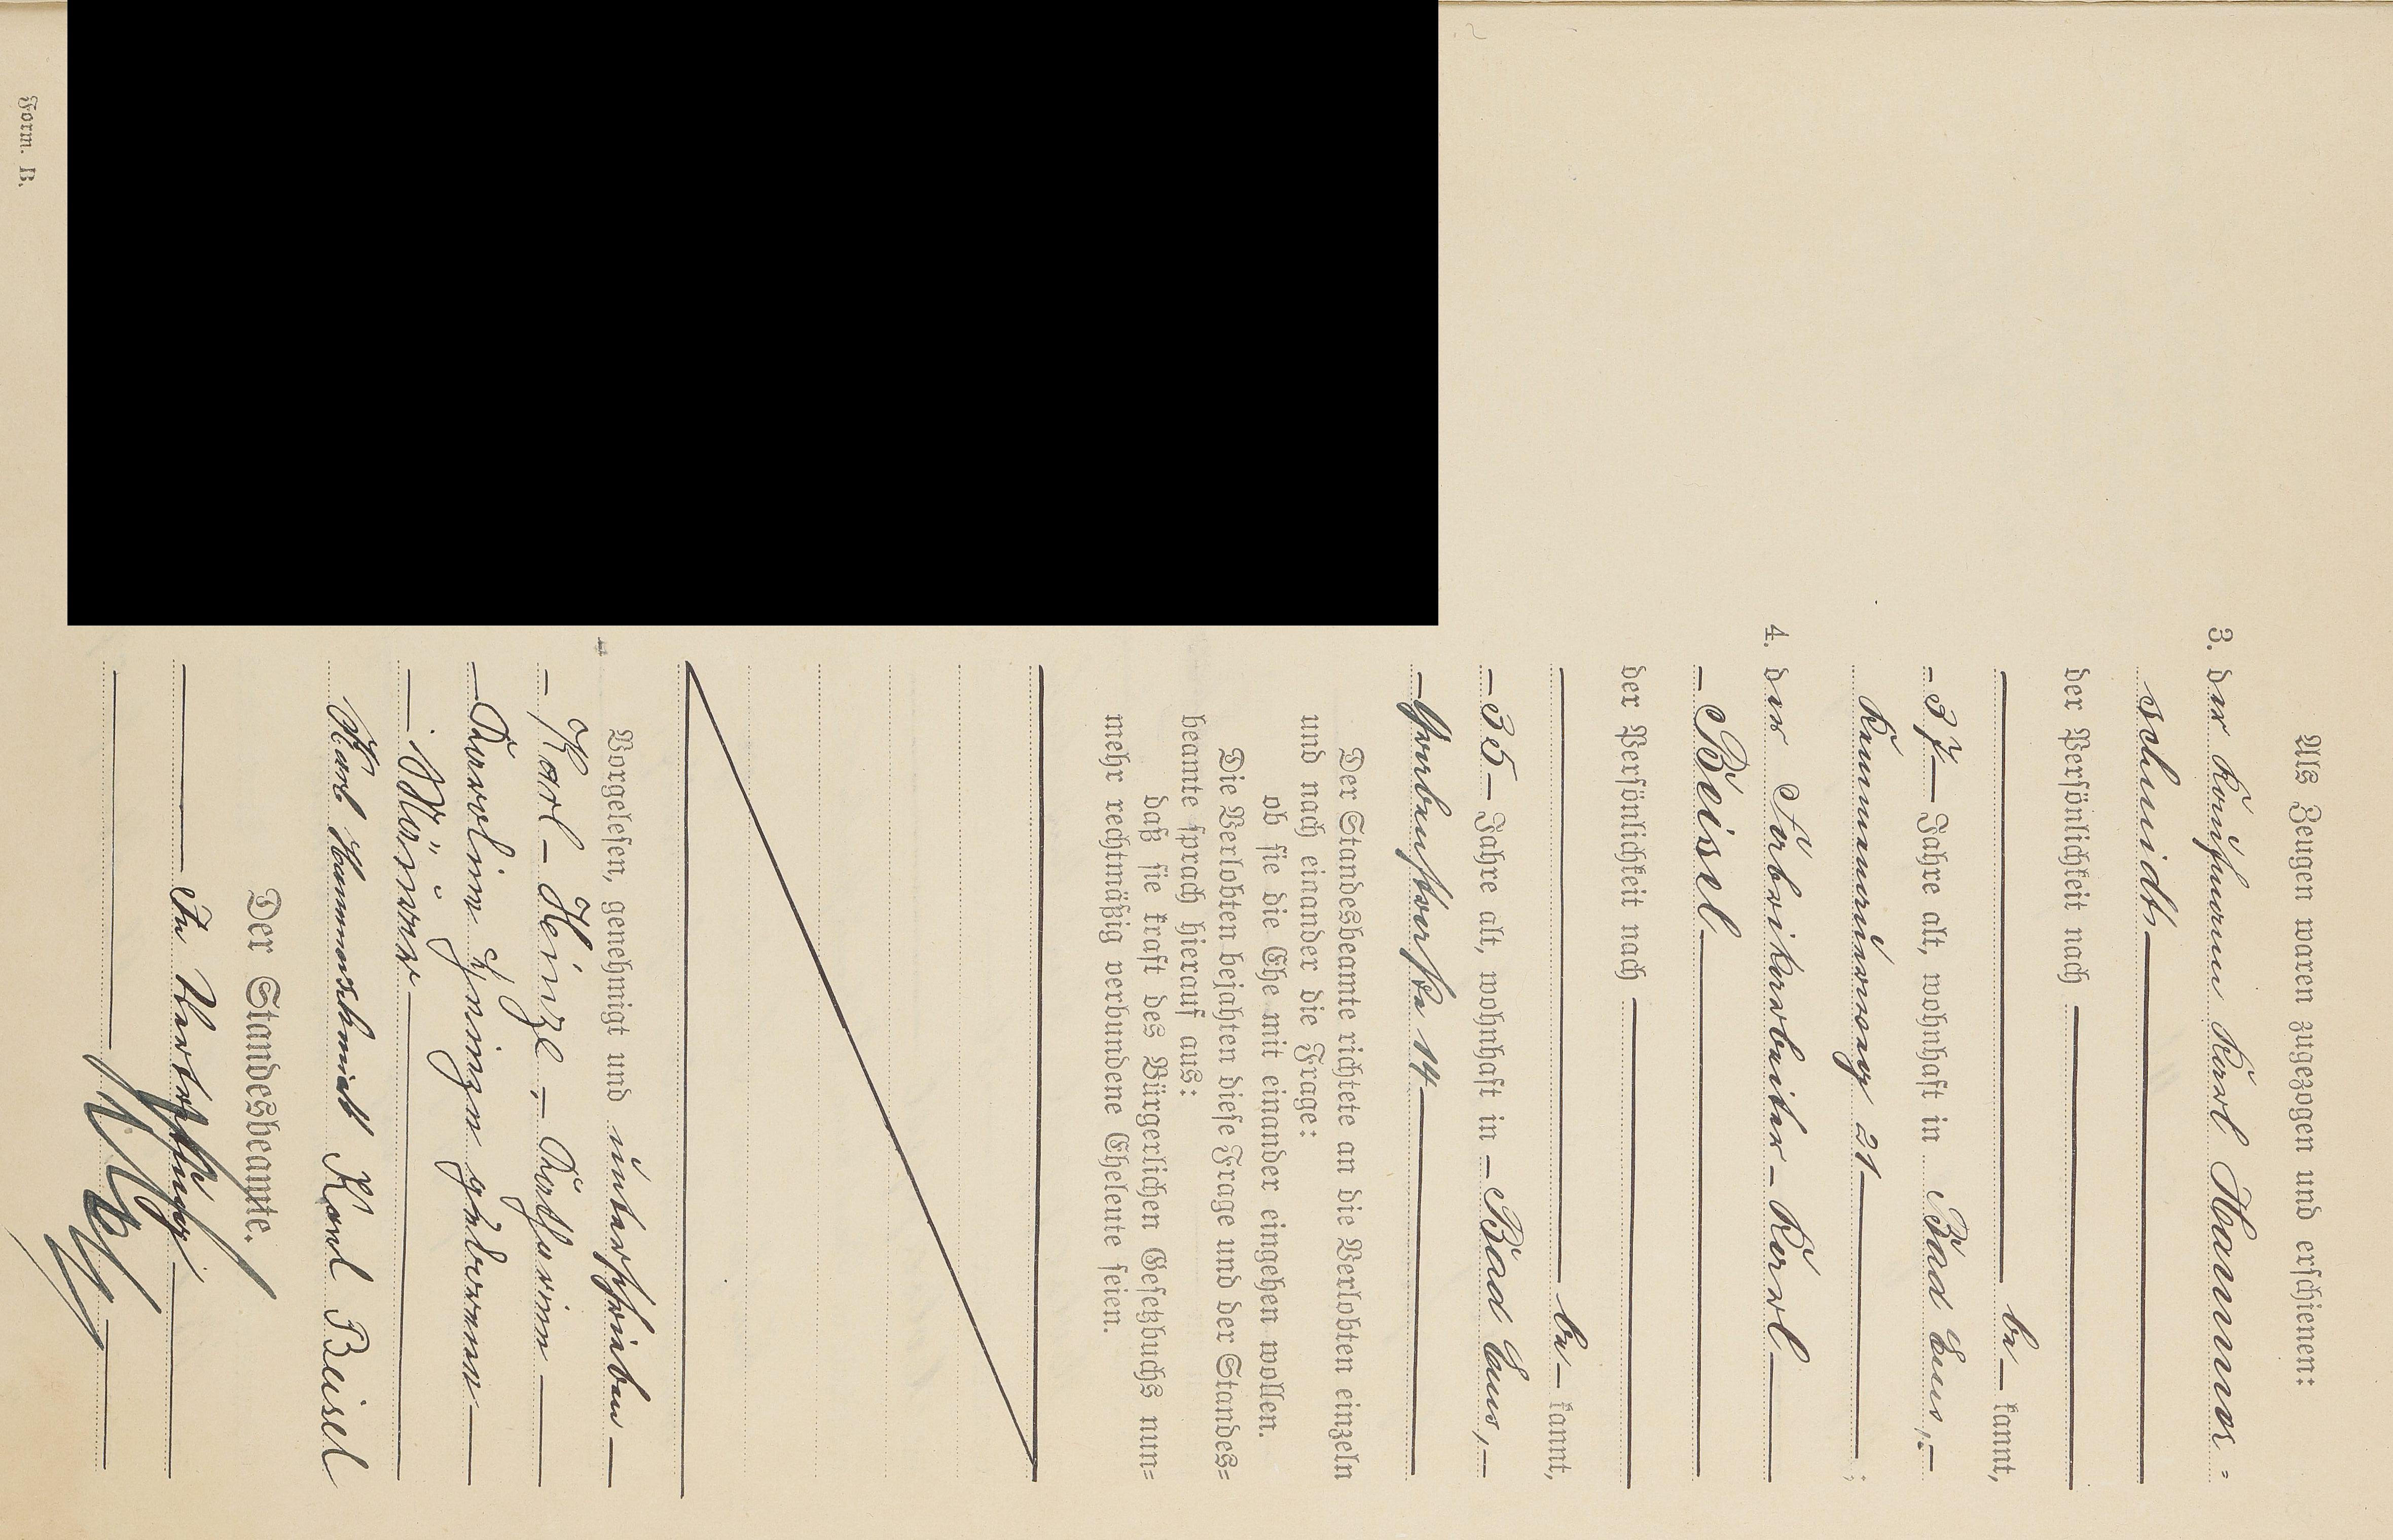 Als Zeugen waren zugezogen und erschienen:
3. der Kaufmann Karl Hammer=
schmidt
der Persönlichkeit nach
be kannt,
37 Jahre alt, wohnhaft in Bad Ems,
21 ;
4. der Fabrikarbeiter Karl
Beisel
der Persönlichkeit nach
be kannt,
35 Jahre alt, wohnhaft in Bad Ems,
14
Der Standesbeamte richtete an die Verlobten einzeln
und nach einander die Frage:
ob sie die Ehe mit einander eingehen wollen.
Die Verlobten bejahten diese Frage und der Standes=
beamte sprach hierauf aus:
daß sie kraft des Bürgerlichen Gesetzbuchs nun=
mehr rechtmäßig verbundene Eheleute seien.
Vorgelesen, genehmigt und unterschrieben
Karl Heinze, Katharina
Karoline Heinze geborene
Karl Hammerschmidt Karl Beisel
Der Standesbeamte.
In Vertretung
Form. B.